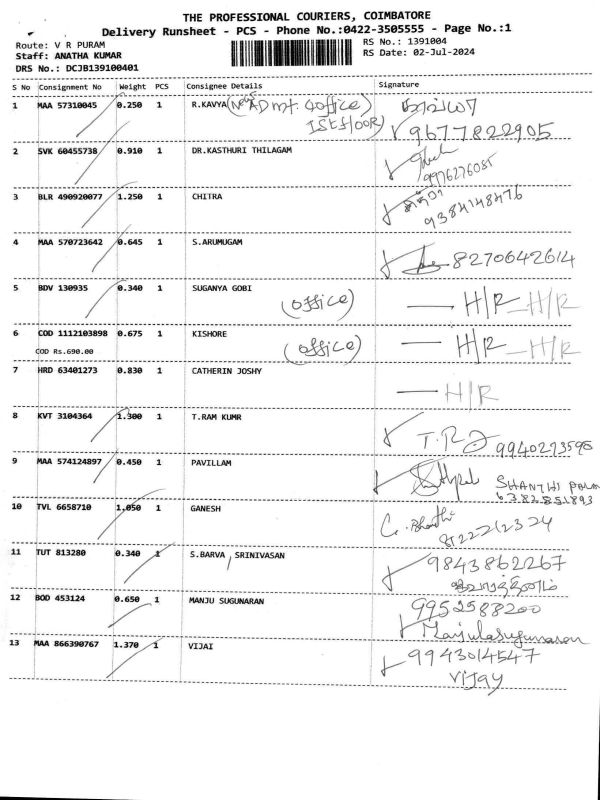 THE PROFESSIONAL COURIERS, COIMBATORE
Delivery Runsheet - PCS - Phone No.:0422-3505555 - Page No.:1
Route: V R PURAM
RS No.: 1391004
Staff: ANATHA KUMAR
RS Date: 02-Jul-2024
DRS No.: DCJB139100401
S No Consignment No Weight PCS Consignee Details Signature
1 MAA 57310045 0.250 1 R.KAVYA (New ADmt. office) காவ்யா
IST floor) 9677822905
2 SVK 60455738 0.910 1 DR.KASTHURI THILAGAM
9976276085
3 BLR 490920077 1.250 1 CHITRA
9384148476
4 MAA 570723642 0.645 1 S.ARUMUGAM 8270642614
5 BDV 130935 0.340 1 SUGANYA GOBI
(office) — H/R — H/R
6 COD 1112103898 0.675 1 KISHORE (office) — H/R — H/R
COD Rs.690.00
7 HRD 63401273 0.830 1 CATHERIN JOSHY
— H/R
8 KVT 3104364 1.300 1 T.RAM KUMR
T.R 9940273598
9 MAA 574124897 0.450 1 PAVILLAM
SHANTHI
6382851893
10 TVL 6658710 1.050 1 GANESH
G. Bharathi
11 TUT 813280 0.340 1 S.BARVA, SRINIVASAN
9843862267
12 BOD 453124 0.650 1 MANJU SUGUNARAN 9952588200
Manjulasugunaran
13 MAA 866390767 1.370 1 VIJAI 9943014547
Vijay